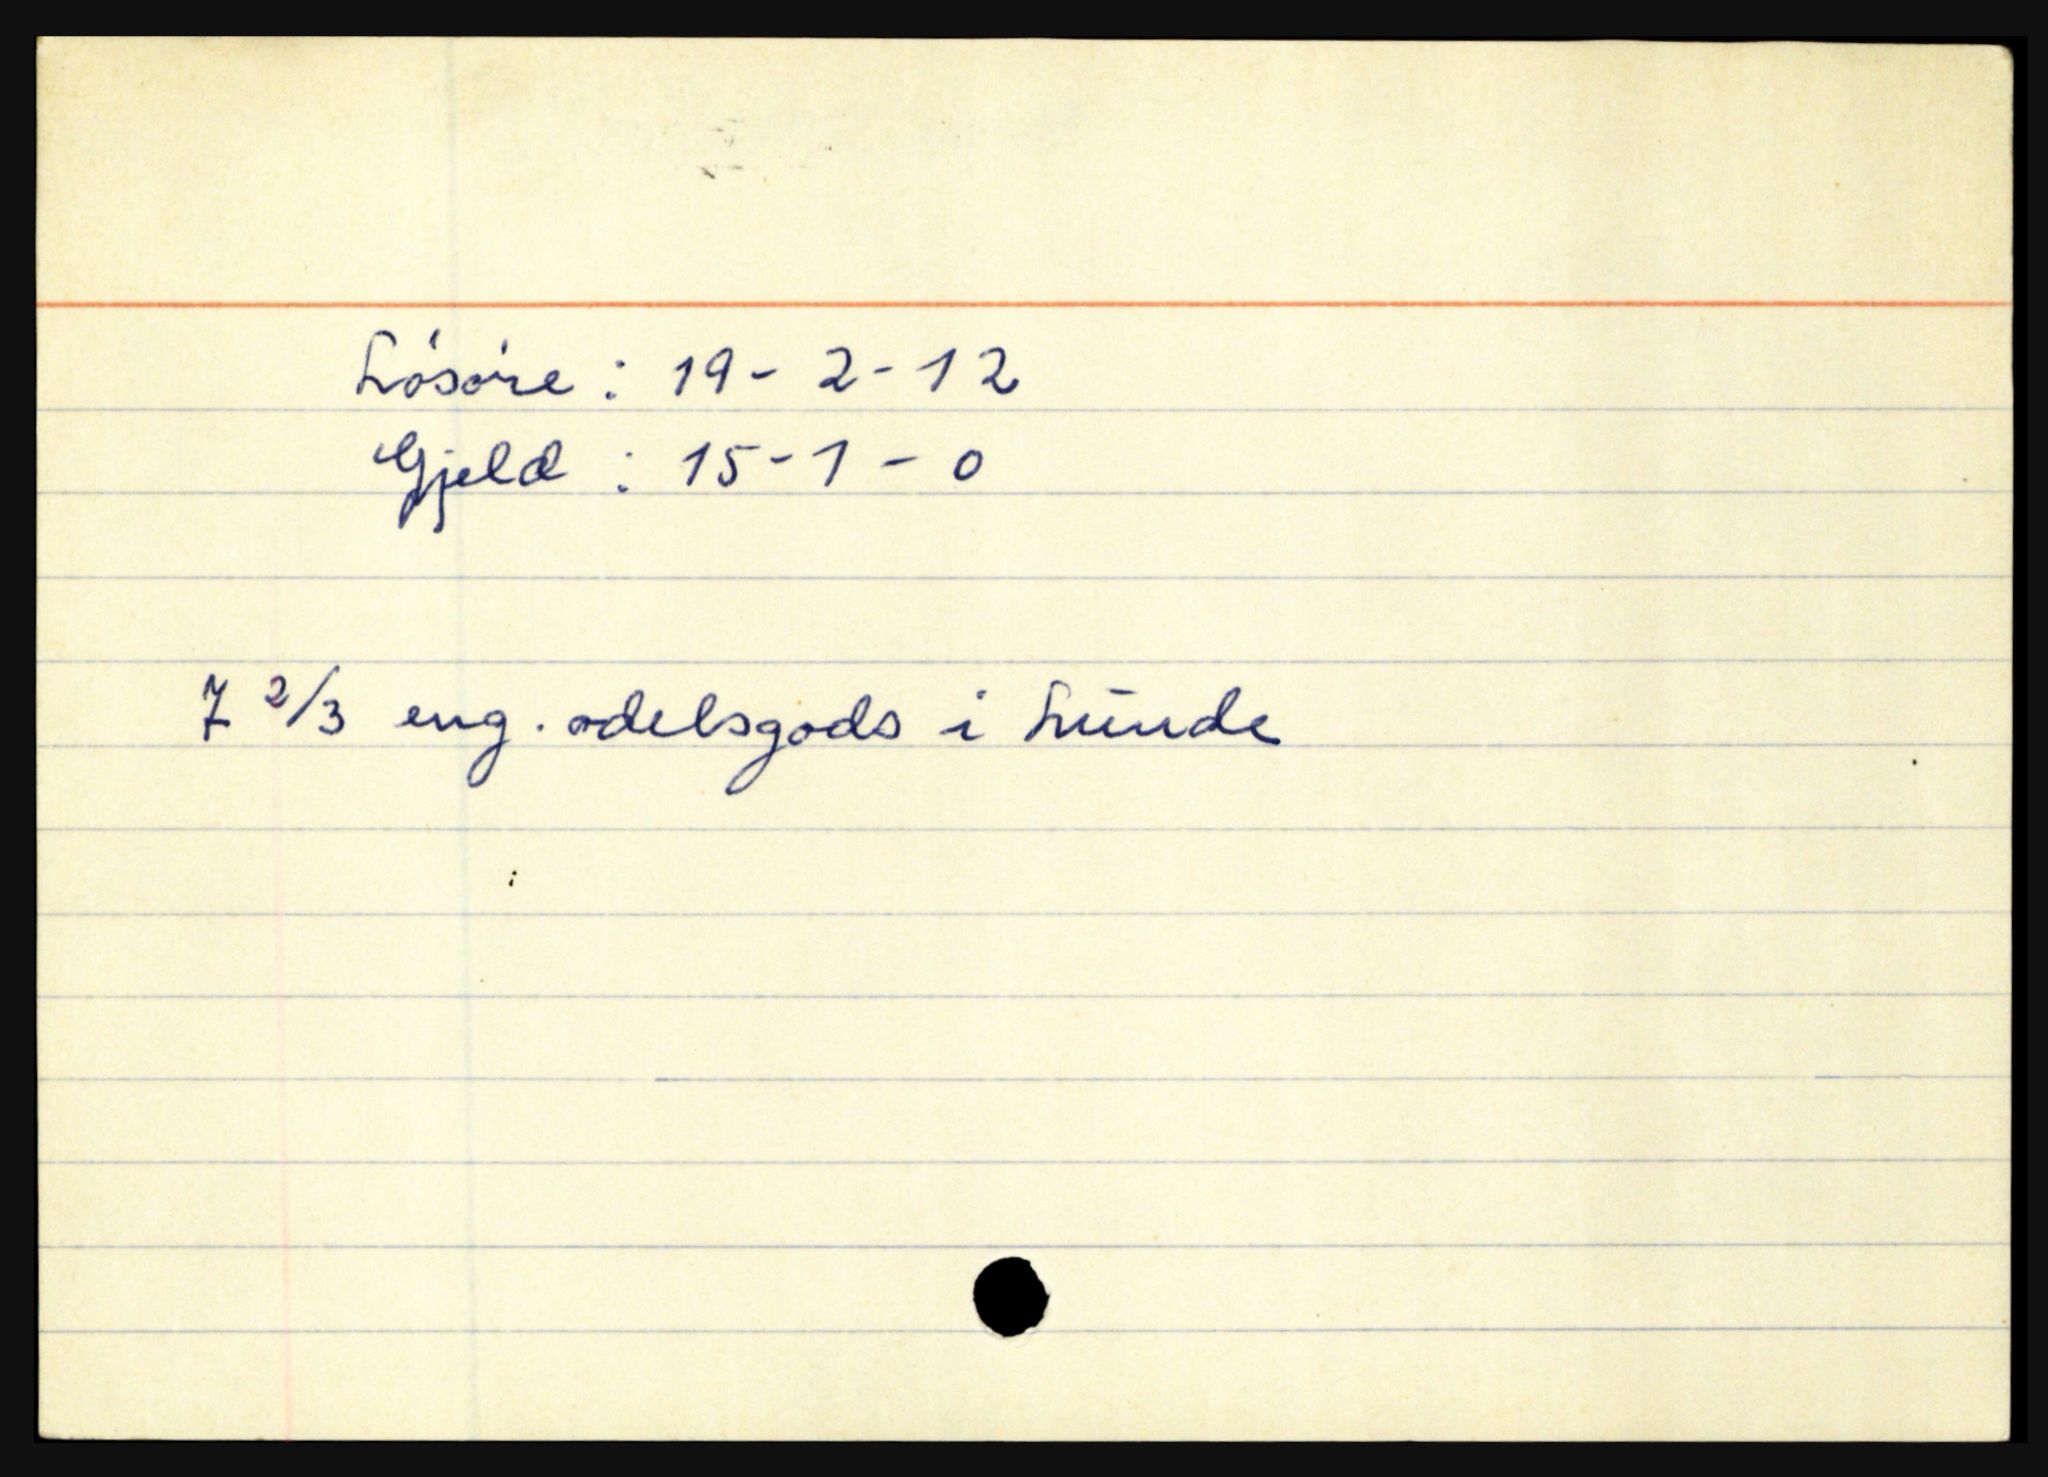 Lösöre : 19 - 2 - 12
Gjeld : 15 - 1 - 0
7 2/3 eng. odelsgods i Lunde